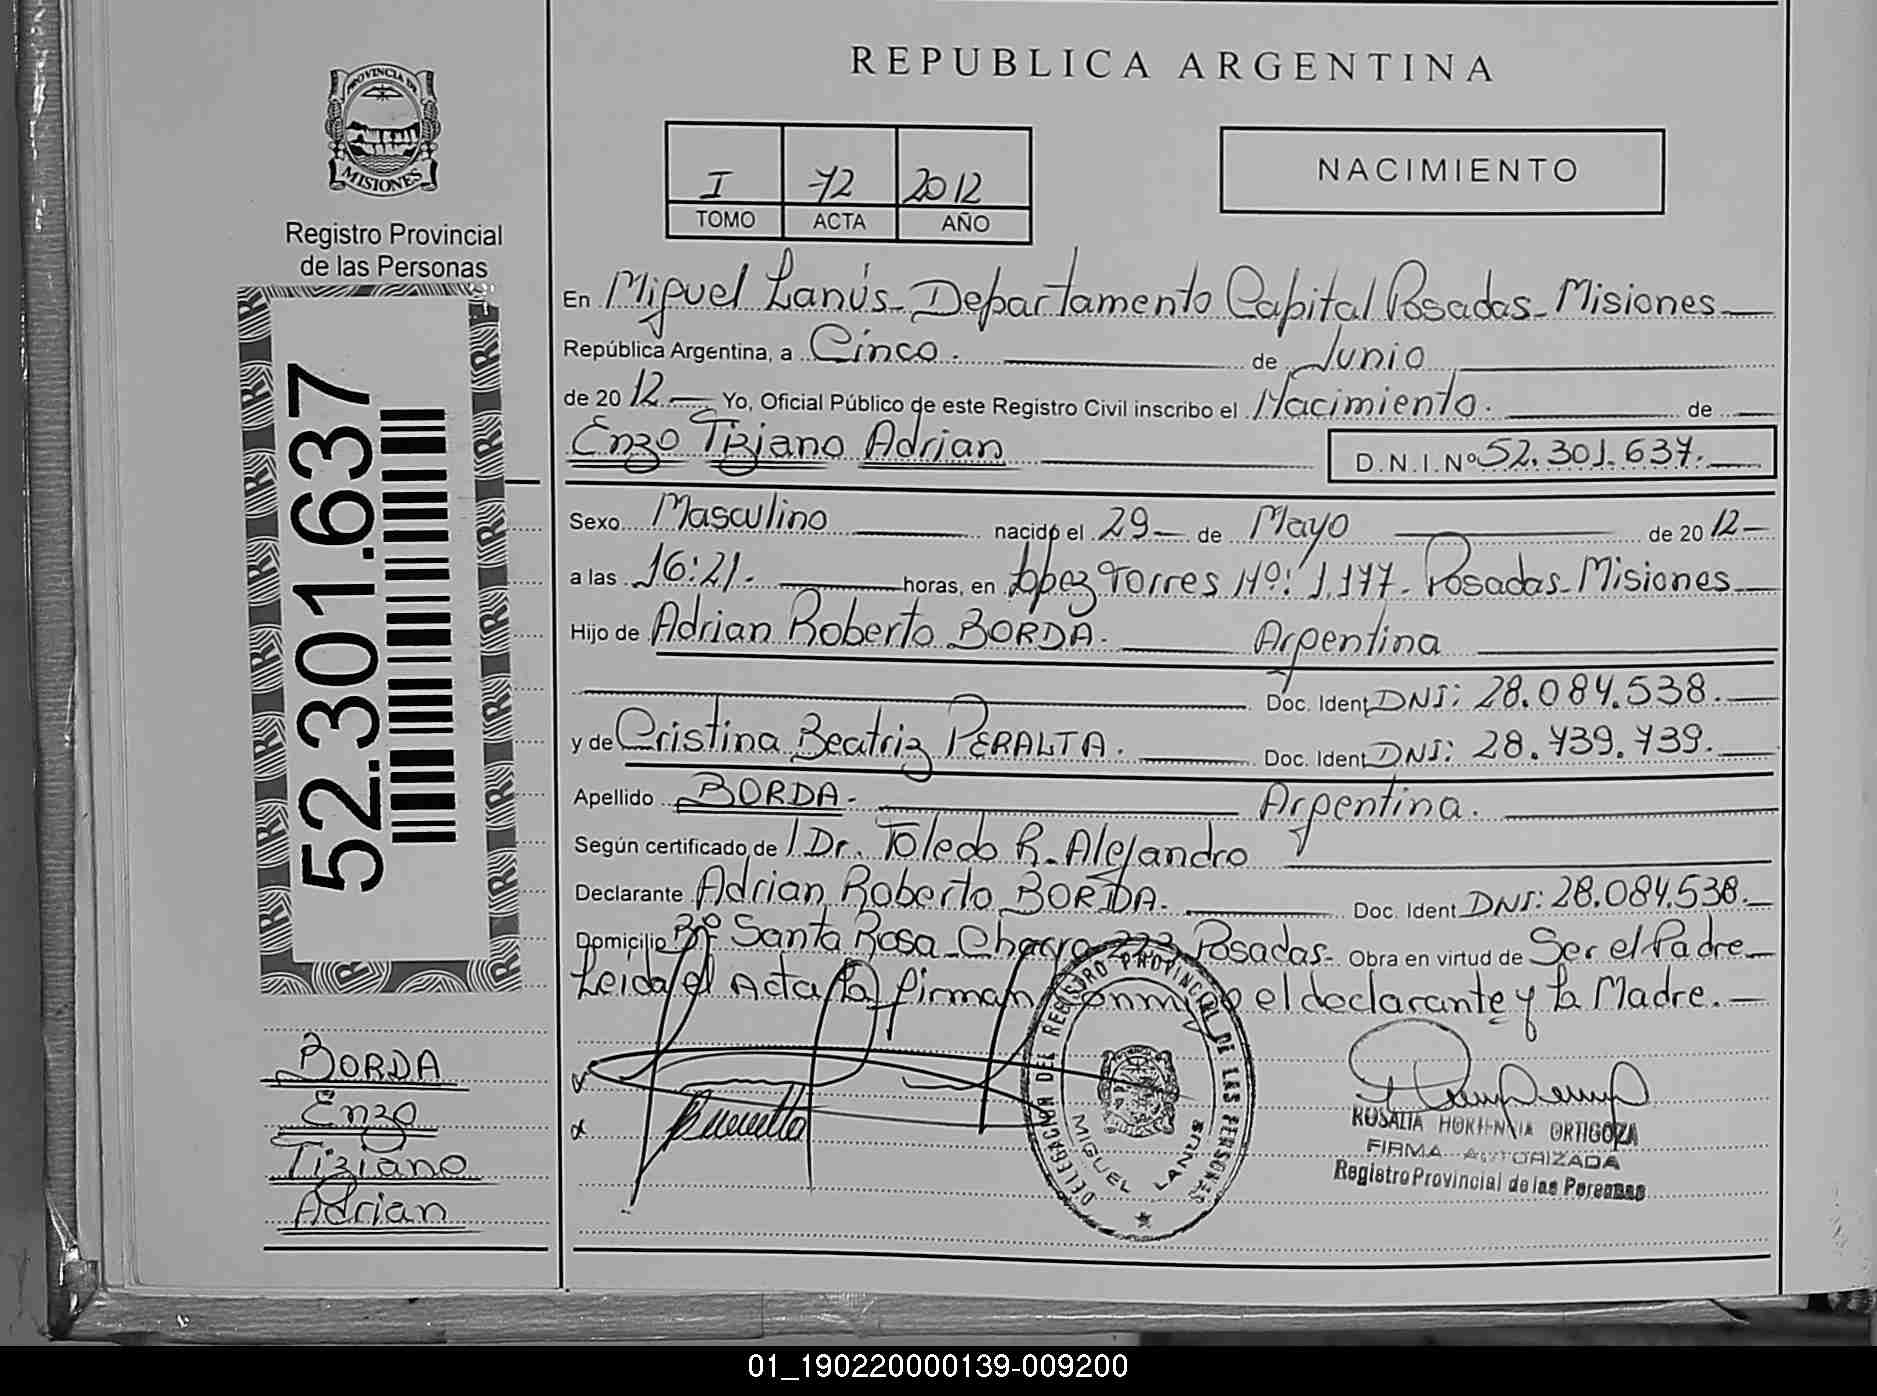 REPUBLICA ARGENTINA
PROVINCIA DE
MISIONES
Registro Provincial
de las Personas
I 72 2012
TOMO ACTA AÑO
NACIMIENTO
52.301.637
En Miguel Lanús - Departamento Capital Posadas - Misiones
República Argentina, a Cinco. de Junio
de 2012 Yo, Oficial Público de este Registro Civil inscribo el Nacimiento. de
Enzo Tiziano Adrian D.N.I.Nº 52.301.637.
Sexo Masculino nacido el 29 de Mayo de 2012
a las 16:21. horas, en Lopez Torres Nº: 1.177. Posadas - Misiones
Hijo de Adrian Roberto BORDA. Argentina
Doc. Ident DNI: 28.084.538.
y de Cristina Beatriz PERALTA. Doc. Ident DNI: 28.739.739.
Apellido BORDA. Argentina.
Según certificado de Dr. Toledo R. Alejandro
Declarante Adrian Roberto BORDA. Doc. Ident DNI: 28.084.538.
Domicilio Bº Santa Rosa - Chacra 223 Posadas. Obra en virtud de Ser el Padre
Leida el Acta la firman conmigo el declarante y la Madre.
BORDA
Enzo
Tiziano
Adrian
DELEGACION DEL REGISTRO PROVINCIAL DE LAS PERSONAS
MIGUEL LANUS
ROSALIA HORTENCIA ORTIGOZA
FIRMA AUTORIZADA
Registro Provincial de las Personas
01_190220000139-009200